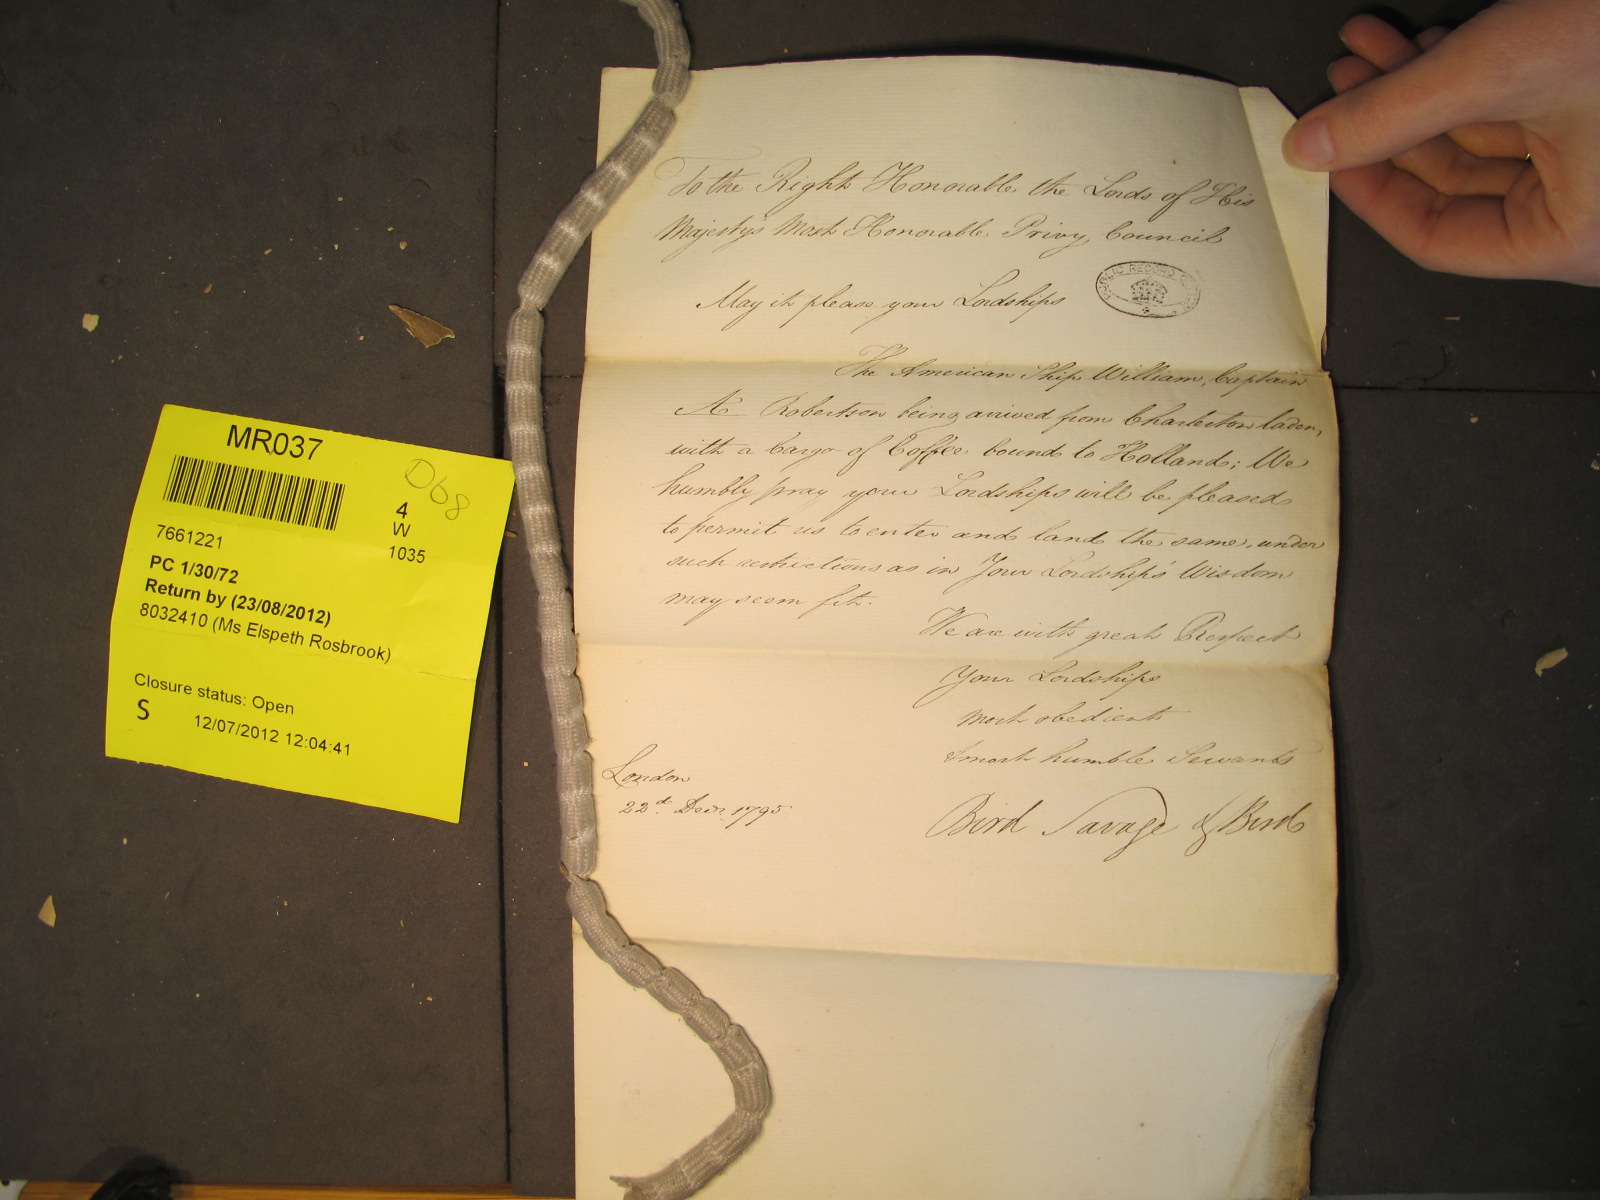 To the Right Honorable the Lords of His
Majesty's Most Honorable Privy Council
May it please your Lordships
PUBLIC RECORD
The American Ship William, Captain
A Robertson being arrived from Charleston laden,
with a Cargo of Coffee bound to Holland; We
humbly pray your Lordships will be pleased
to permit us to enter and land the same, under
such restrictions as in Your Lordship's Wisdom
may seem fit.
We are with great Respect
Your Lordships
most obedient
& most humble Servants
London
22d. Decr. 1795
Bird Savage & Bird
MR037
D68
4
W
1035
7661221
PC 1/30/72
Return by (23/08/2012)
8032410 (Ms Elspeth Rosbrook)
Closure status: Open
S
12/07/2012 12:04:41